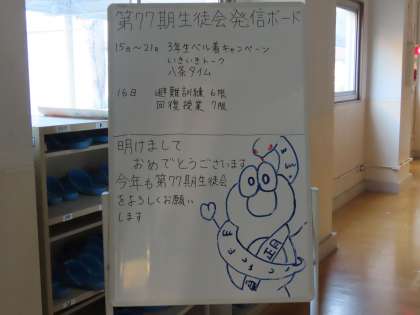 第77期生徒会発信ボード
15日～21日 3年生ベル着キャンペーン
いきいきトーク
八茶タイム
16日 避難訓練 6限
回復授業 7限
明けまして
おめでとうございます
今年も第77期生徒会
をよろしくお願い
します